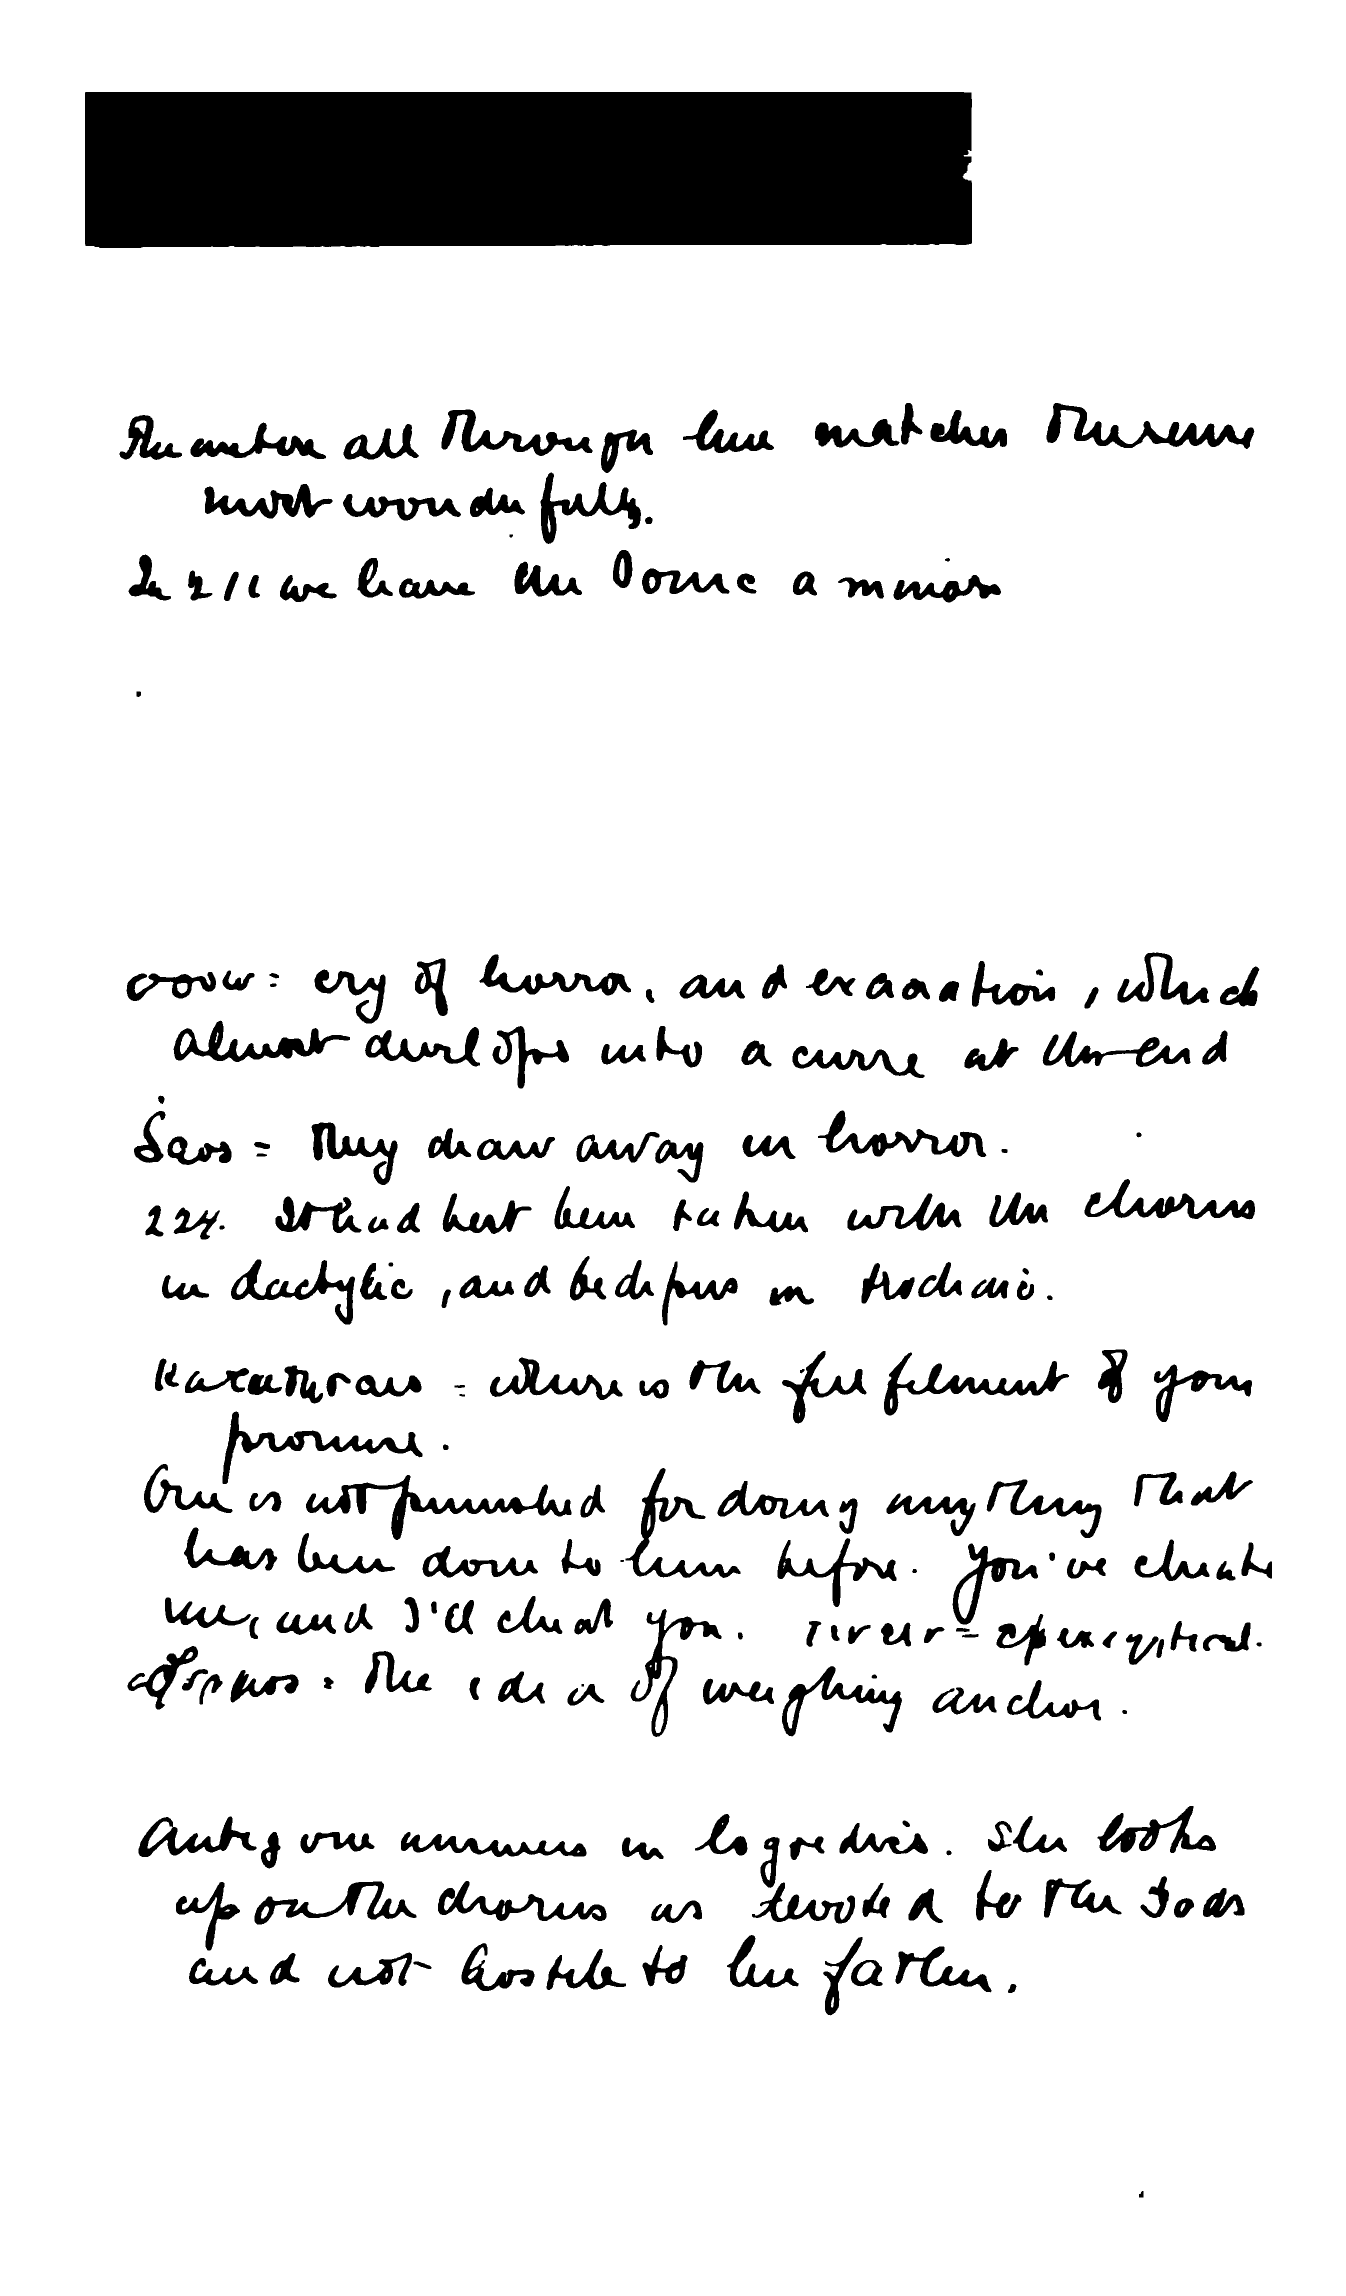 The metre all through here matches the sense
most wonderfully.
In 211 we have the Ionic a minore
= cry of horror, and execration, which
almost develops into a curse at the end
= They draw away in horror.
224. It had best been taken with the chorus
in dactylic, and Oedipus in trochaic.
= where is the fulfilment of your
promise.
One is not punished for doing anything that
has been done to him before. You've cheated
me, and I'll cheat you. = epexegetical.
= the idea of weighing anchor.
Antigone answers in logaoedics. She looks
upon the chorus as devoted to the Gods
and not hostile to her father.